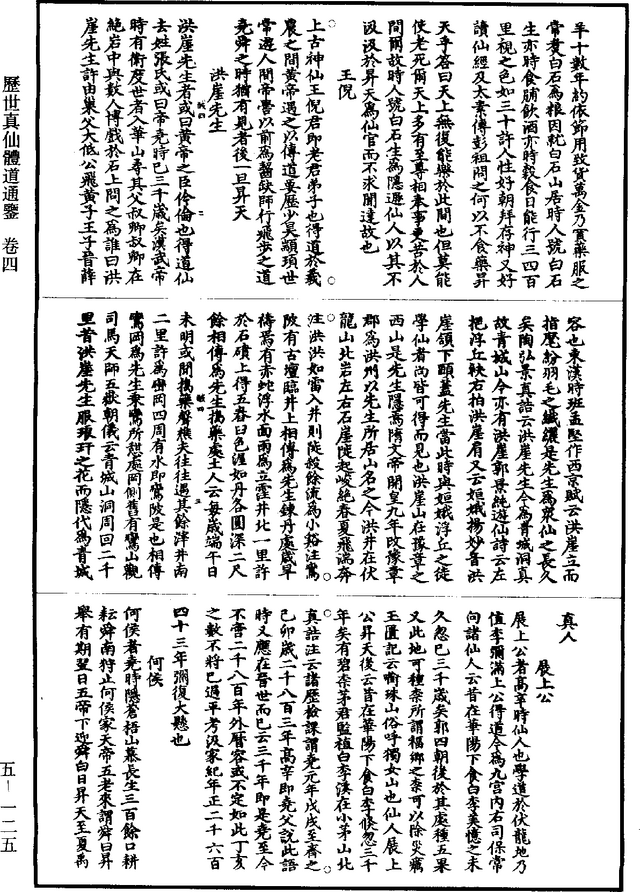 羊十數年約依節用致貨萬金乃買藥服之
常煑白石爲粮因就白石山居時人號白石
生亦時食脯飲酒亦時穀食日能行三四百
里視之色如三十許人性好朝拜存神又好
讀仙經及太素傳彭祖問之何以不食藥昇
天乎荅曰天上無復能樂於此間也但莫能
使老死爾天上多有至尊相奉事更苦於人
間爾故時人號白石生爲隱遁仙人以其不
汲汲於昇天爲仙官而不求聞達故也
王倪
上古神仙王倪君即老君弟子也得道於羲
農之間黃帝遇之以傳道要歷少昊顓頊世
常遊人間帝嚳以前爲齧缺師行飛步之道
堯舜之時猶有見者後一旦昇天
洪崖先生
洪崖先生者或曰黃帝之臣伶倫也得道仙
去姓張氏或曰帝堯時已三千歲矣漢武帝
時有衛度世者入華山尋其父叔卿叔卿在
絶岩中與數人博戲於石上問之爲誰曰洪
崖先生許由巢父大低公飛黃子王子晉薛
容也東漢時班孟堅作西京賦云洪崖立而
指麾紛羽毛之纎纚是先生爲衆仙之長久
矣陶弘景真誥云洪崖先生今爲青城洞真
故青城山今亦有洪崖郭景純遊仙詩云左
把浮丘袂右拍洪崖肩又云姮娥揚妙音洪
崖頷下頤蓋先生當此時與姮娥浮丘之徒
學仙者尚皆可得而見也洪崖山在豫章之
西山是先生隱焉隋文帝開皇九年改豫章
郡爲洪州以先生所居山名之今洪井在伏
龍山北岩左右石崖陡起峻絶春夏飛湍奔
注洪洪如雷入井則陡殺餘流爲小谿注鸞
陂有古壇臨井上相傳爲先生鍊丹處歲旱
禱焉有赤蛇浮水面雨爲立霔井北一里許
於石磧上得五舂臼色渥如丹各圓深二尺
餘相傳爲先生擣藥處土人云每歲端午日
未明或聞擣藥聲樵夫往往遇其餘滓井南
二里許爲鸞岡四周有水即鸞陂是也相傳
鸞岡爲先生乗鸞所憇處岡側舊有鸞山觀
司馬天師五嶽朝儀云青城山洞周回二千
里昔洪崖先生服琅玕之花而隱代爲青城
真人
展上公
展上公者高辛時仙人也學道於伏龍地乃
值李彌滿上公得道今爲九宮内右司保常
向諸仙人云昔在華陽下食白李美憶之未
久忽已三千歲矣郭四朝後於其處種五果
又此地可種柰所謂福鄉之柰可以除災癘
王匱記云銜珠山俗呼獨女山也仙人展上
公昇天後云昔在華陽下食白李倏忽三千
年矣有碧柰茅君監植白李溪在小茅山北
真誥注云諸歷檢課謂堯元年戊戌至齊之
己卯歲二千八百三年高辛即堯父說此語
時又應在晉世而已云三千年即是堯至今
不啻二千八百年外曆容或不定如此丁亥
之數不將已過乎考汲冢紀年正二千六百
四十三年彌復大懸也
何侯
何侯者堯時隱蒼梧山慕長生三百餘口耕
耘舜南狩止何侯家天帝五老來謂舜曰昇
舉有期翌日五帝下迎舜白日昇天至夏禹
歷世真仙體道通鑒 卷四
五—一二五